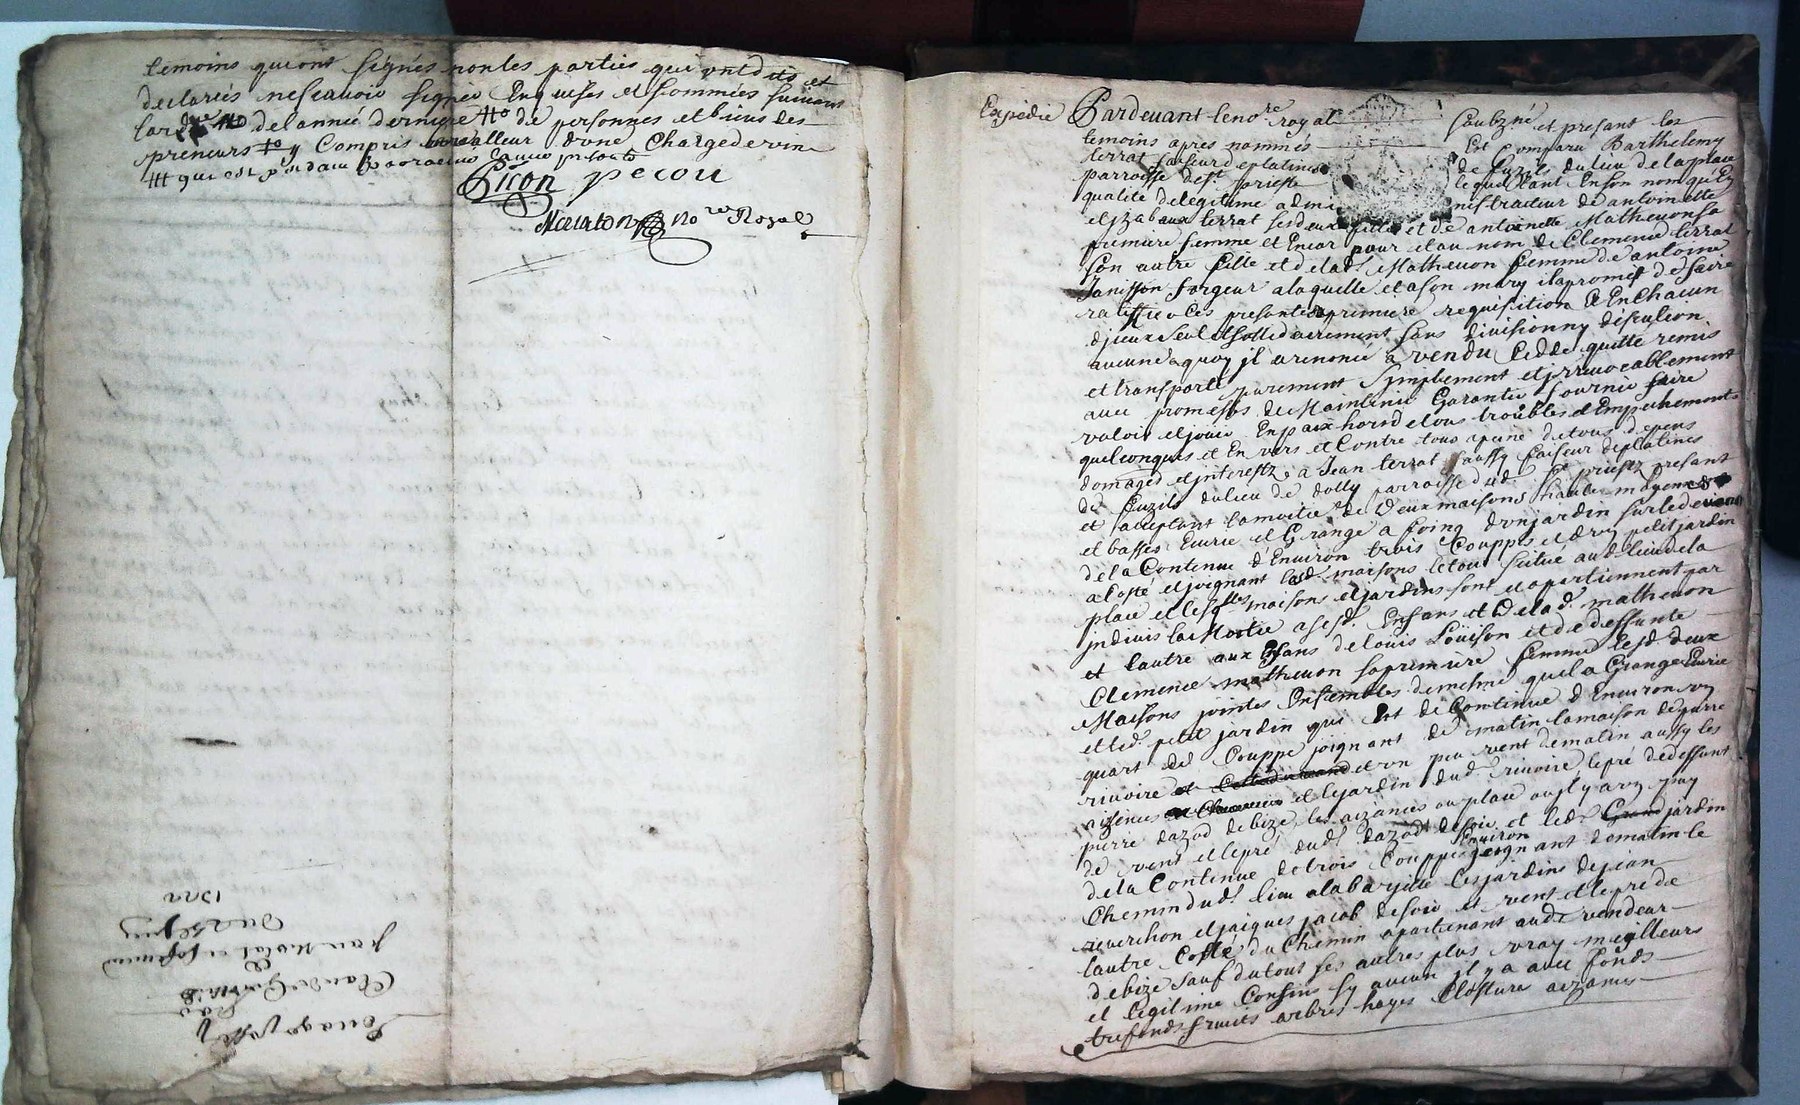 temoins qui ont signés non les parties qui ont dit et
declarés nescavoir signer Enquises et sommées suivant
de lannée derniere de personnes et biens des
preneurs y Compris donné Charge de vin
qui est
Picon pecou
no.re Royal
Expédié
Pardevant le no.re royal soubz.né et presant les
temoins apres nommés Est Comparu Barthelemy
terrat faiseur de platines de fuzils du lieu de la place
parroisse de s.t prieste lequel tant En son nom qu'En
qualité de legitime administrateur de antoinette
et yzabaux terrat ses deux filles et de antoinette Matheuon sa
premiere femme et Encor pour et au nom de Clemence terrat
son autre fille et de lad. Matheuon femme de antoine
Janisson forgeur a laquelle et a son mary il a promis de faire
ratiffier ces presantes a premiere requisition Et En chacun
d'jceux seul et sollidairement sans division ny discution
aucune a quoy jl a renoncé a vendu Cedde quitte remis
et transporté purement Simplement et jrrevocablement
avec promesses de Maintenir Garantir fournir faire
valoir et jouir En paix hors de tous troubles et Empechements
quelconques et En vers et Contre tous a peine de tous depens
domages et jnterestz a Jean terrat aussy faiseur de platines
de fuzils du lieu de dolly parroisse dud. s.t priestz presant
et acceptant la moitié de deux maisons hautes moyennes
et basses Ecurie et Grange a foing d'un jardin sur le devant
de la Contenue d'Environ trois Couppes et d'un petit jardin
a Costé et joignant lesd. maisons le tout scitué aud. lieu de la
place et lesqlles maisons et jardins sont et apartiennent par
jndivis la Moitié a sesd. Enfans et de lad. matheuon
et lautre aux Efans de louis Loüison et de deffunte
Clemence matheuon sa premiere femme lesd. deux
Maisons jointes Ensembles de mesme que la Grange Ecurie
et led. petit jardin qui Est de Contenue d'Environ un
quart de Couppe joignant de matin la maison de pierre
rivoire et un peu vent de matin aussy les
aizences et le jardin dud. rivoire le pré de deffunt
pierre dazod de bize, les aizances ou place ou jl y a un puy
de vent et le pré dud. dazod de soir et led. Grand jardin
de la Contenue de trois Couppes Environ joignant de matin le
Chemin dud. lieu a la les jardins de jean
reverchon et jaiques jacob de soir et vent et le pré de
lautre Costé du Chemin apartenant aud. vendeur
de bize sauf du tout ses autres plus vray meilleurs
et legitime Confins sy aucun jl y a avec fonds
trefonds fruits arbres hayes Closture aizances
Claude
1722